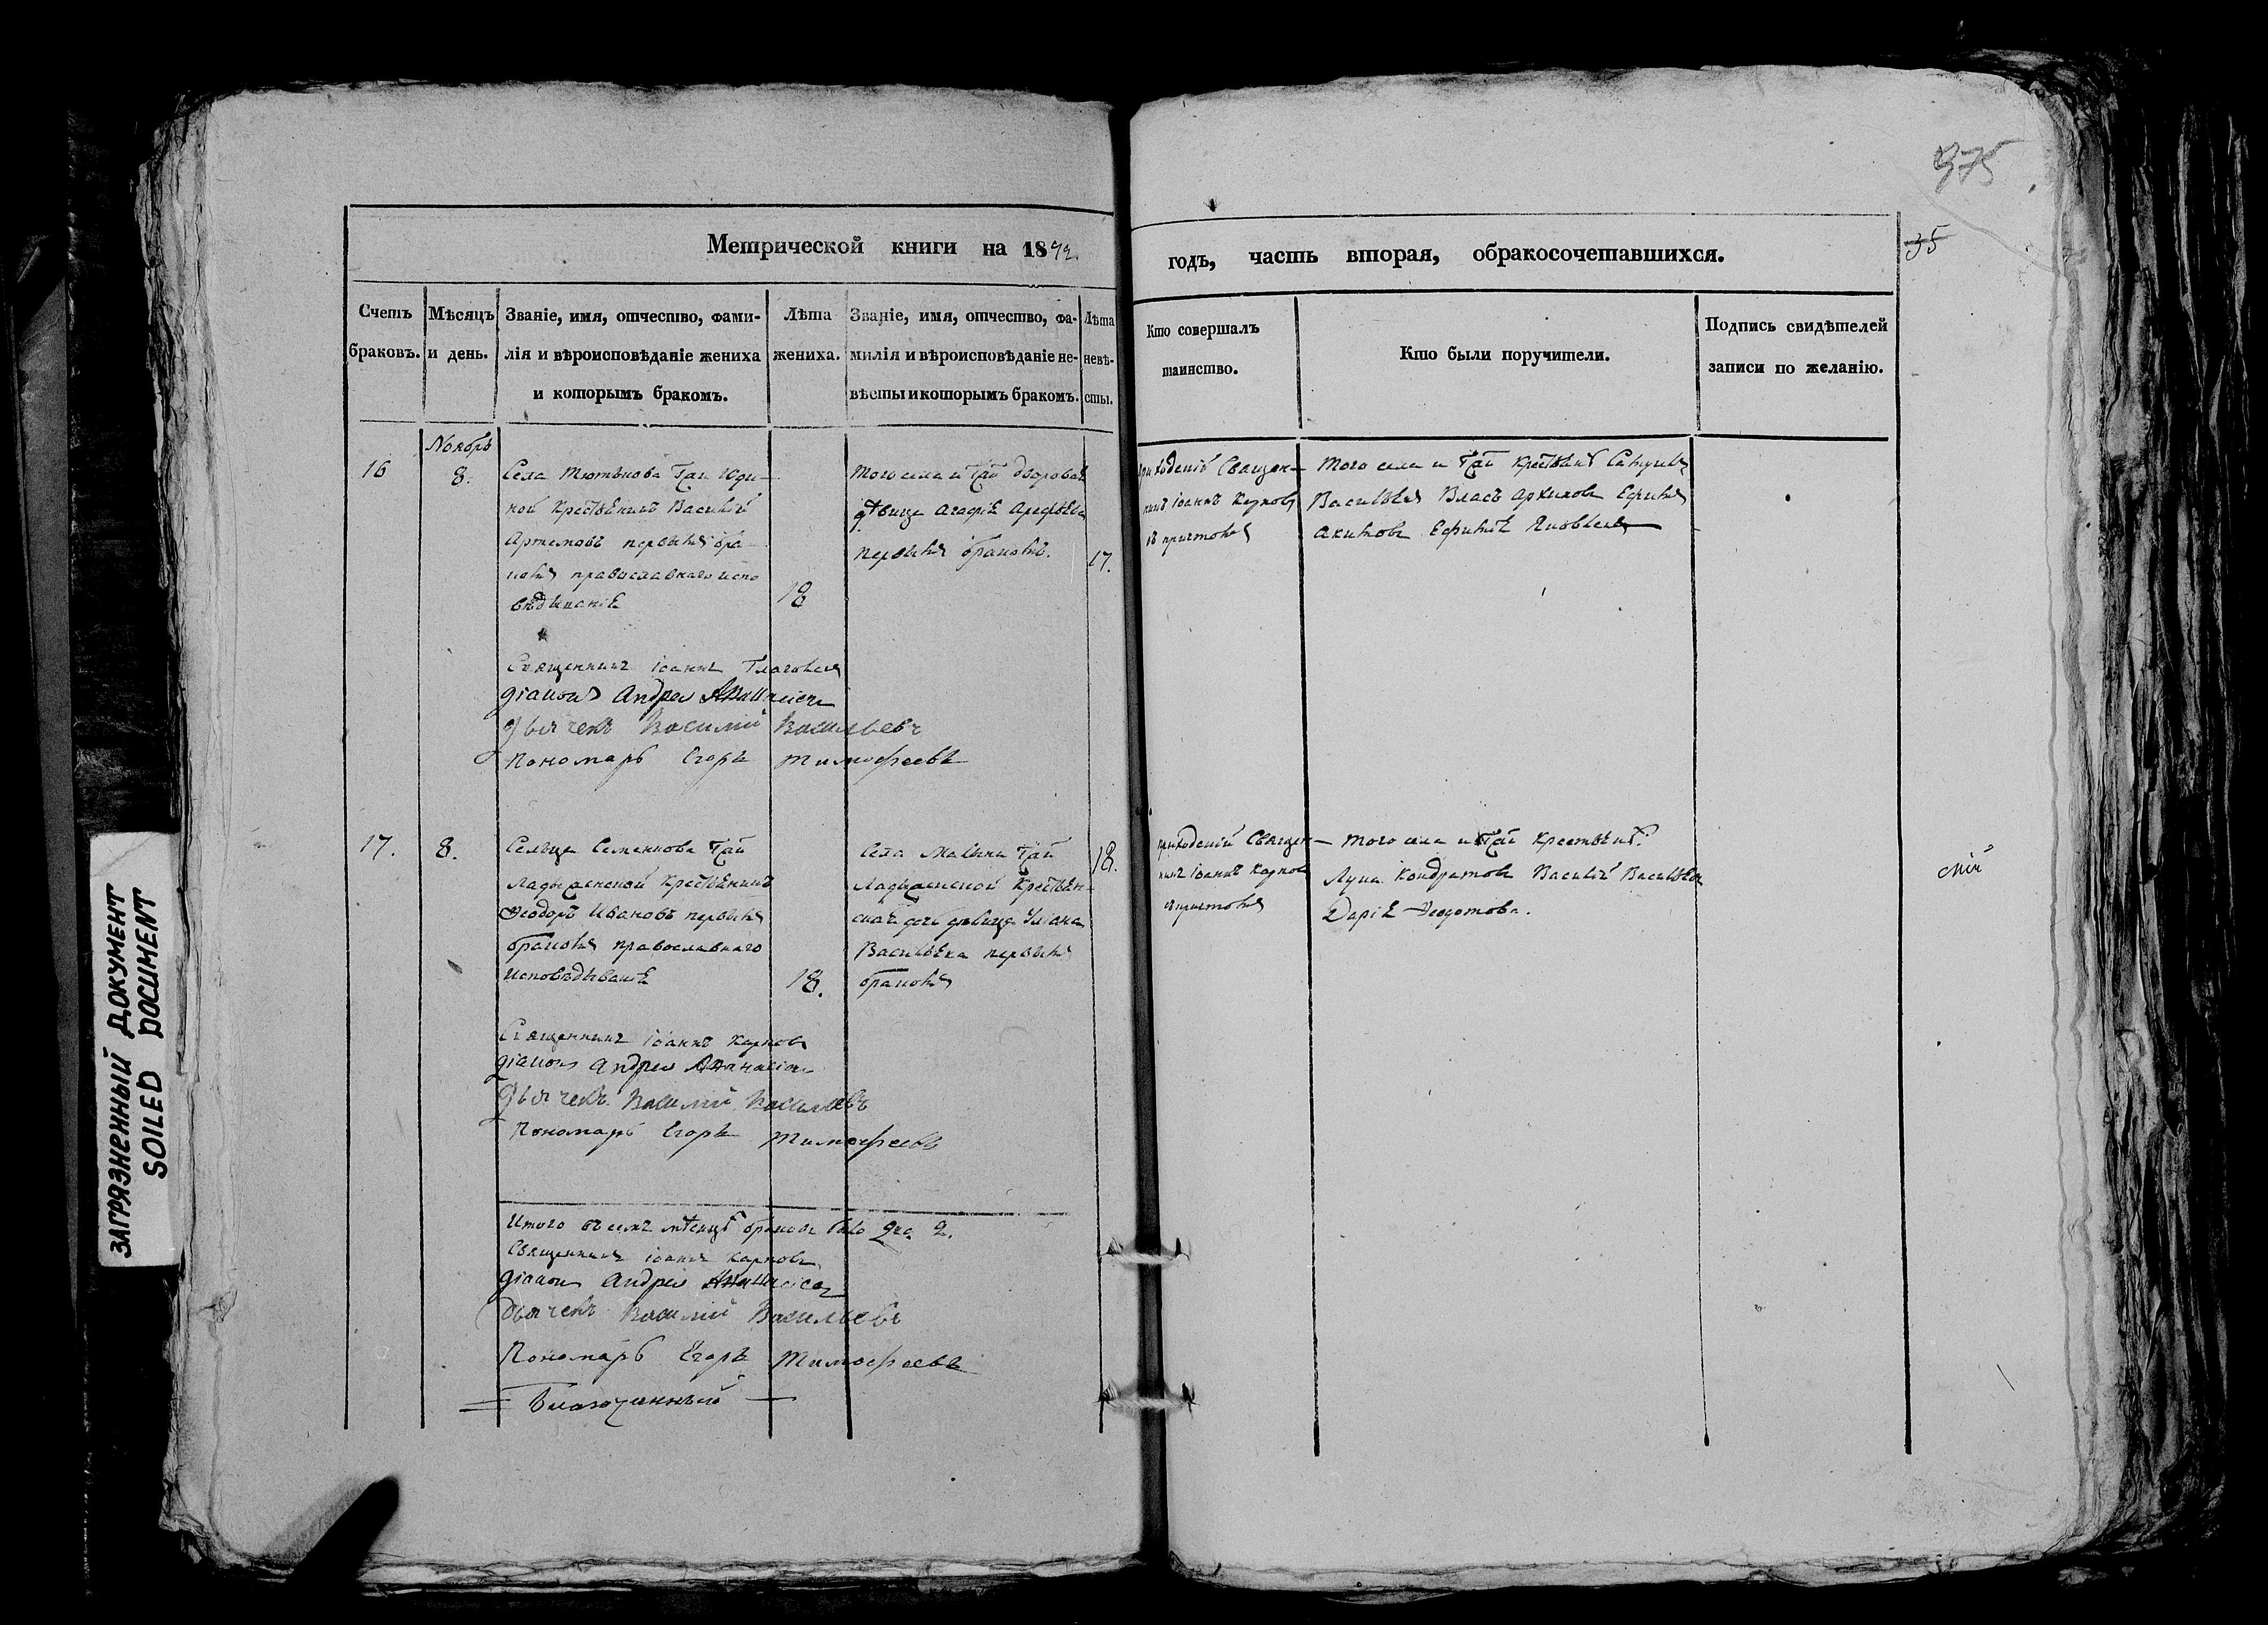 975
35
Метрической книги на 1842
годъ, часть вторая, обракосочетавшихся.
Счетъ браковъ.
Мѣсяцъ и день.
Званіе, имя, отчество, фами-
лія и вѣроисповѣданіе жениха
и которымъ бракомъ.
Лѣта
жениха.
Званіе, имя, отчество, фа-
милія и вѣроисповѣданіе не-
вѣсты и которымъ бракомъ.
Лѣта
невѣ-
сты.
Кто совершалъ
таинство.
Кто были поручители.
Подпись свидѣтелей
записи по желанію.
16
Ноябрь
8.
Села Тютькова Гжи Юди-
ной крестьянинъ Василій
Артемовъ первымъ бра-
комъ православнаго испо
вѣданія
18
того села и Гжи дворовая
дѣвица Агафія Арефьева
первымъ бракомъ.
17.
приходскій Священ-
никъ Іоаннъ Карповъ
съ причтомъ
того села и Гжи крестьяне
Васильевъ Власъ Архиповъ Ефимъ
Акимовъ Ефимъ Яковлевъ
Священникъ Іоаннъ
діаконъ Андрей
Дьячекъ Василій Васильевъ
Пономарь Егоръ Тимофеевъ
17.
8.
Сельца Семенкова Гжи
Ладыженской крестьянинъ
Ѳеодоръ Ивановъ первымъ
бракомъ православнаго
исповѣдыванія
18.
Села Малина Гжи
Ладыженской крестьян-
ская дочь дѣвица Уліана
Васильева первымъ
бракомъ
18.
приходскій Священ-
никъ Іоаннъ Карповъ
съ причтомъ
того села и Гжи крестьяне:
Лука Кондратовъ Василій Васильевъ
Дарія Ѳедотова.
сній
Священникъ Іоаннъ Карповъ
діаконъ Андрей Аѳанасіевъ
Дьячекъ Василій Васильевъ
Пономарь Егоръ Тимофеевъ
Итого въ семъ мѣсяцѣ браковъ было два 2.
Священникъ Іоаннъ Карповъ
діаконъ Андрей Аѳанасіевъ
Дьячекъ Василій Васильевъ
Пономарь Егоръ Тимофеевъ
= Благочинный —
ЗАГРЯЗНЕННЫЙ ДОКУМЕНТ
SOILED DOCUMENT